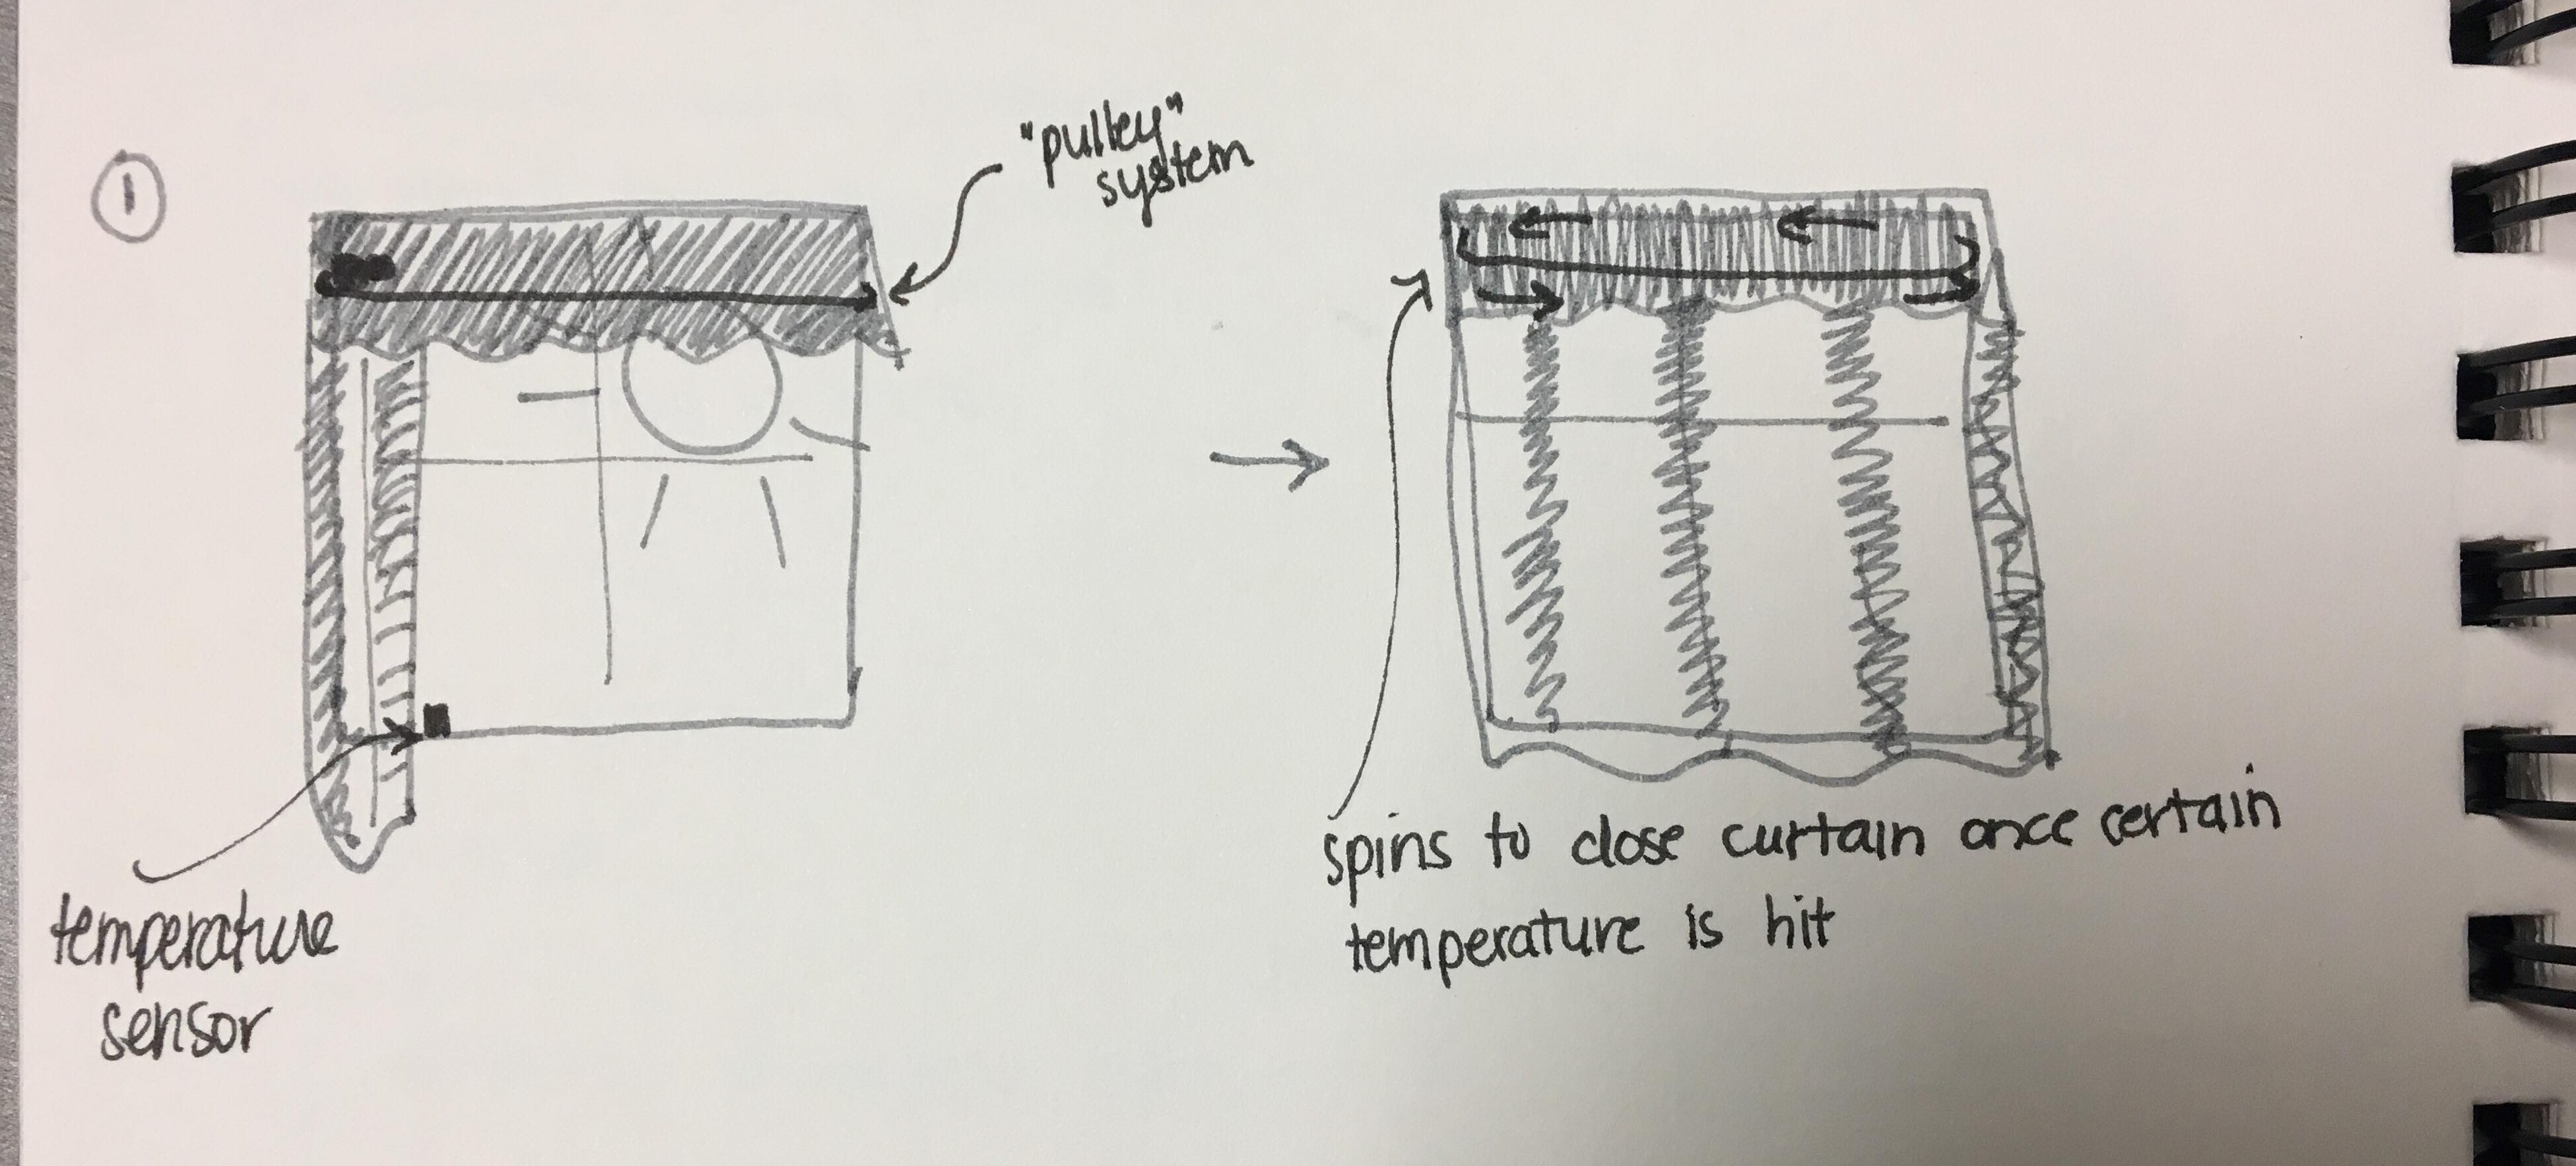 1
"pulley"
system
temperature
sensor
spins to close curtain once certain
temperature is hit